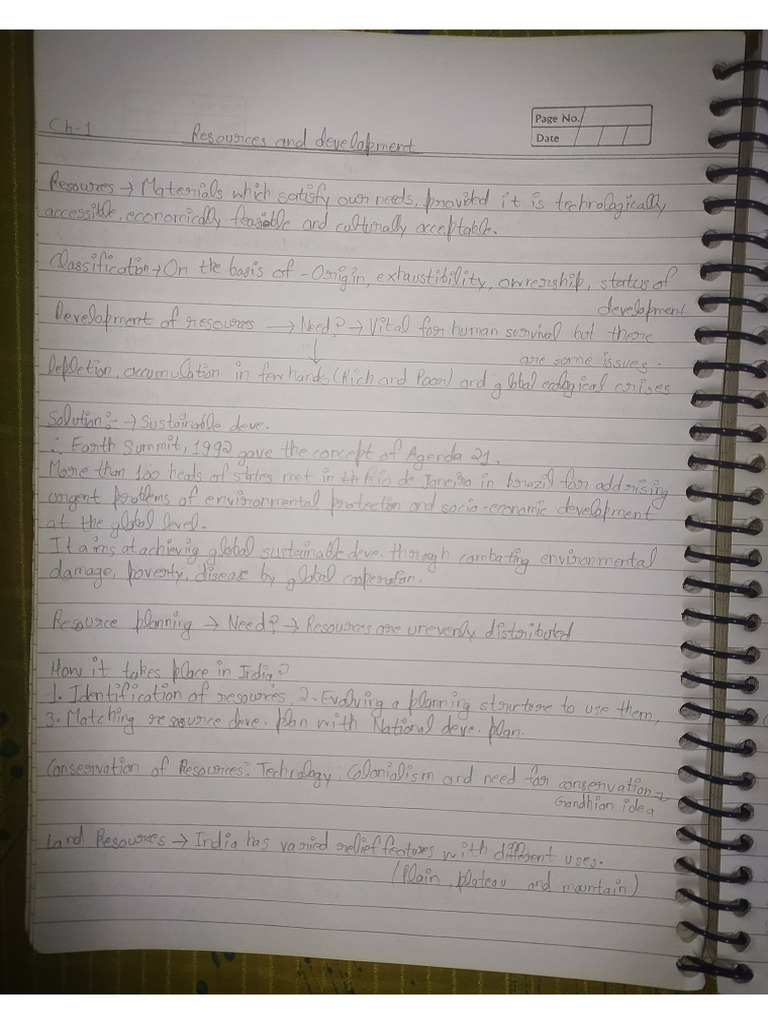 Ch-1
Resources and development
Page No.
Date
Resources → Materials which satisfy our needs, provided it is technologically
accessible, economically feasible and culturally acceptable.
Classification → On the basis of - Origin, exhaustibility, ownership, status of
development
Development of resources → Need? → Vital for human survival but there
are some issues.
↓
Depletion, accumulation in few hands (Rich and Poor) and global ecological crises
Solution:- → Sustainable deve.
∴ Earth Summit, 1992 gave the concept of Agenda 21.
More than 100 heads of states met in Rio de Janeiro in brazil for addrising
urgent problems of environmental protection and socio-economic development
at the global level.
It aims at achieving global sustainable deve. through combating environmental
damage, poverty, disease by global cooperation.
Resource planning → Need? → Resources are unevenly distributed
How it takes place in India?
1. Identification of resources, 2. Evolving a planning structure to use them,
3. Matching resource deve. plan with National deve. plan.
Conservation of Resources: Technology, Colonialism and need for conservation →
Gandhian idea
Land Resources → India has varied relief features with different uses.
(Plain, plateau and mountain)